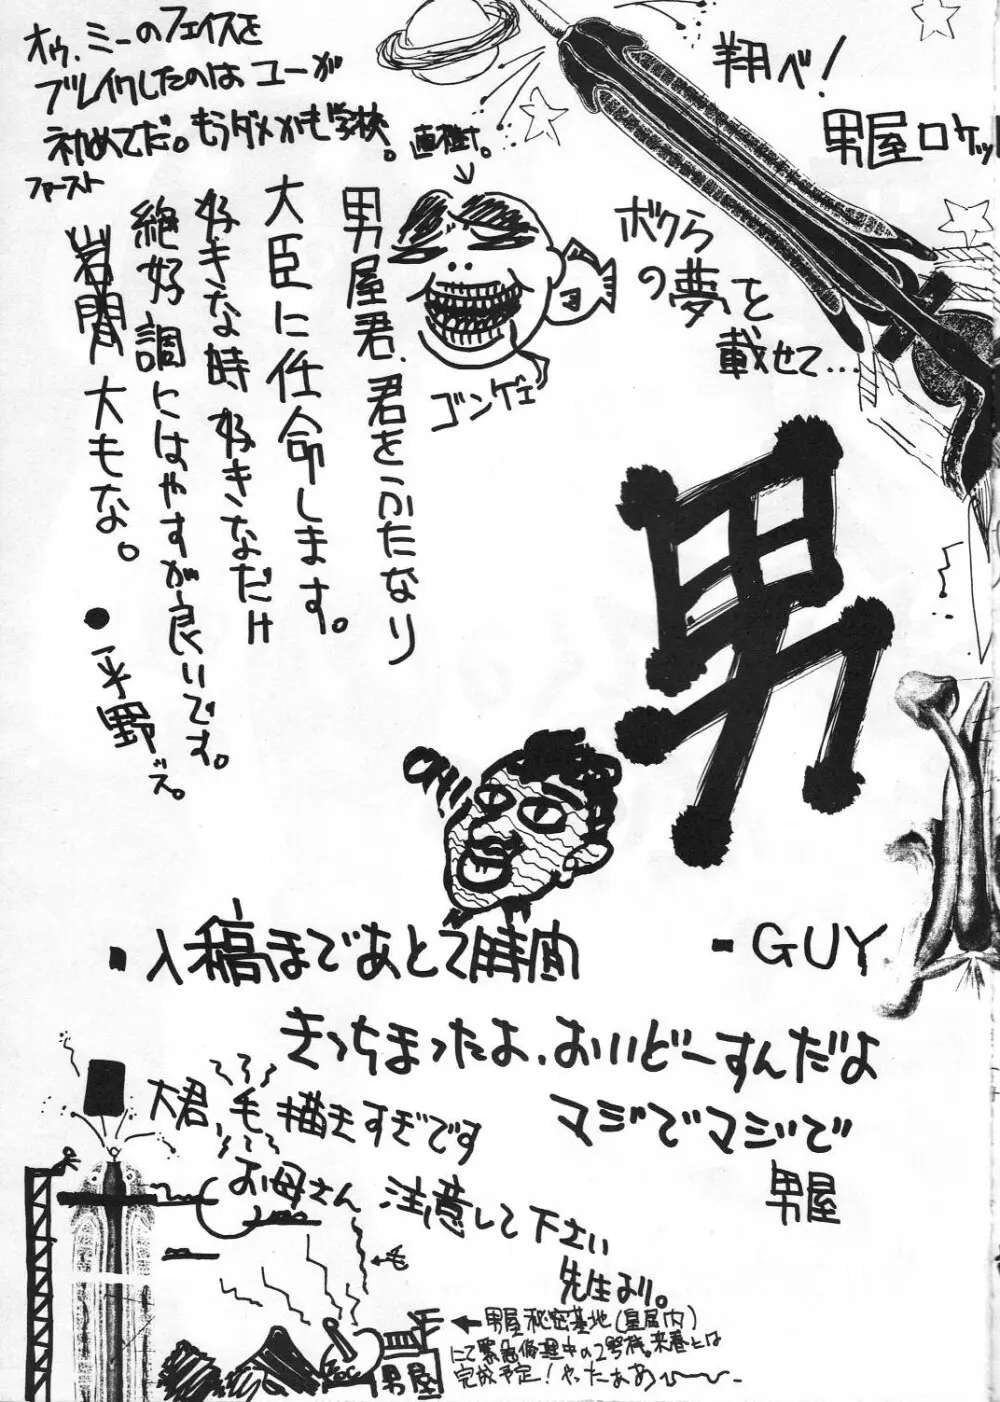 オゥ、ミーのフェイスを
ブレイクしたのはユーが
初めてだ。もうダメかも学校。直樹。
ファースト
翔べ!
男屋ロケット
ボクら
の夢を
載せて…
ゴンゲェ
男屋君、君をふたなり
大臣に任命します。
好きな時好きなだけ
絶好調にはやすが良いです。
岩間大もな。
●平野ズ。
男
CHU
▪入稿まであと2時間
▪GUY
きっちまったよ、おいどーすんだよ
マジでマジで
男屋
大君、毛描きすぎです
お母さん注意して下さい
先生より。
←毛
←男屋秘密基地(皇居内)
にて緊急修理中の2号機。来春とは
完成予定!やったぁあ
男屋